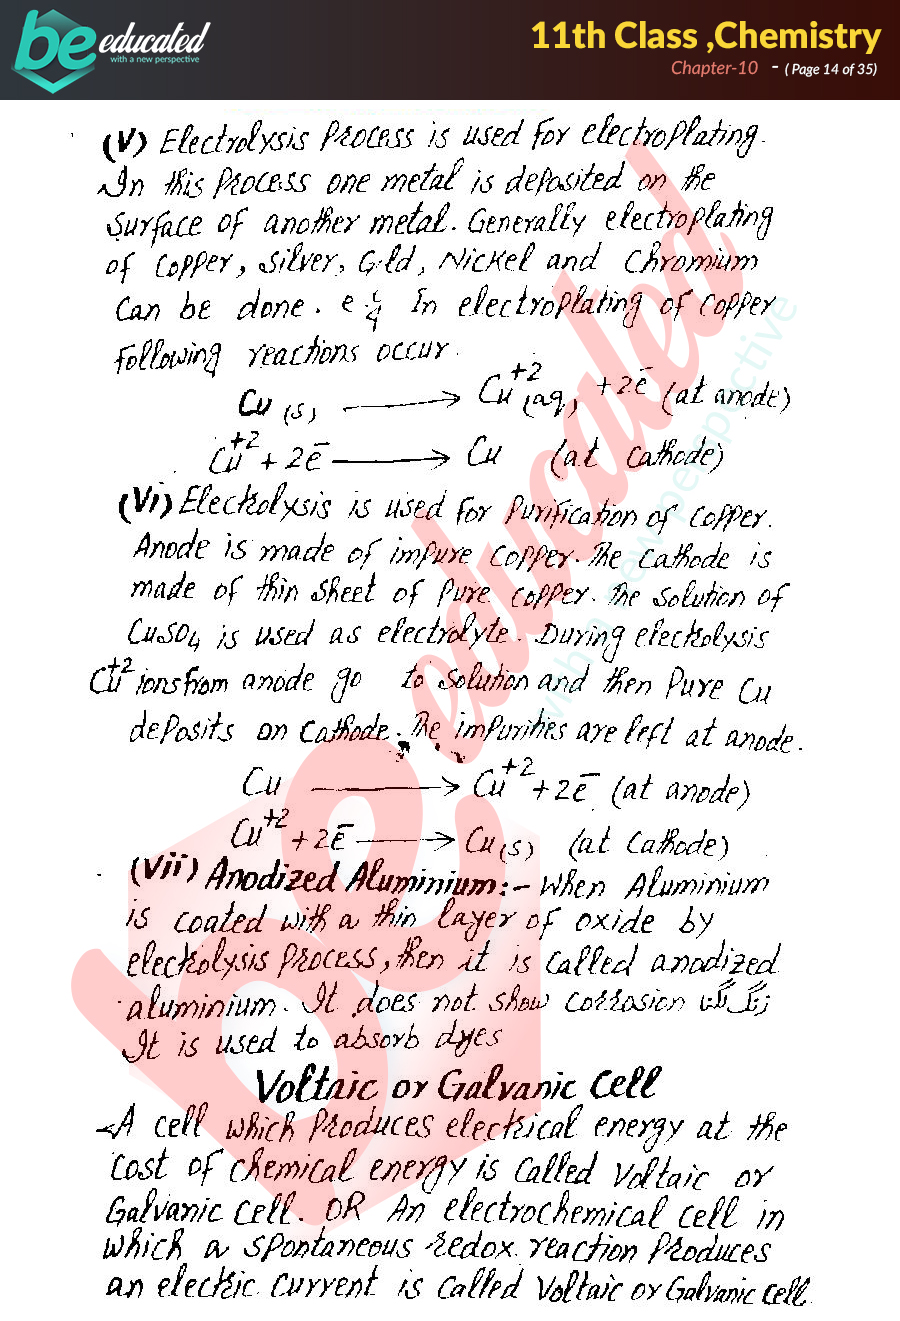 be educated
with a new perspective
11th Class ,Chemistry
Chapter-10 - ( Page 14 of 35)
(V) Electrolysis Process is used for electroplating.
In this Process one metal is deposited on the
surface of another metal. Generally electroplating
of Copper, Silver, Gold, Nickel and Chromium
can be done. e.g In electroplating of Copper
following reactions occur.
Cu(s) ⟶ Cu⁺²(aq) + 2e⁻ (at anode)
Cu⁺² + 2e⁻ ⟶ Cu (at cathode)
(Vi) Electrolysis is used for Purification of copper.
Anode is made of impure copper. The cathode is
made of thin sheet of Pure copper. The solution of
CuSO₄ is used as electrolyte. During electrolysis
Cu⁺² ions from anode go to solution and then Pure Cu
deposits on cathode. The impurities are left at anode.
Cu ⟶ Cu⁺² + 2e⁻ (at anode)
Cu⁺² + 2e⁻ ⟶ Cu(s) (at Cathode)
(Vii) Anodized Aluminium:- When Aluminium
is coated with a thin layer of oxide by
electrolysis Process, then it is called anodized
aluminium. It does not show corrosion زنگ لگنا
It is used to absorb dyes
Voltaic or Galvanic Cell
A cell which Produces electrical energy at the
cost of chemical energy is called Voltaic or
Galvanic Cell. OR An electrochemical cell in
which a spontaneous redox reaction Produces
an electric current is called Voltaic or Galvanic cell.
be educated
with a new perspective